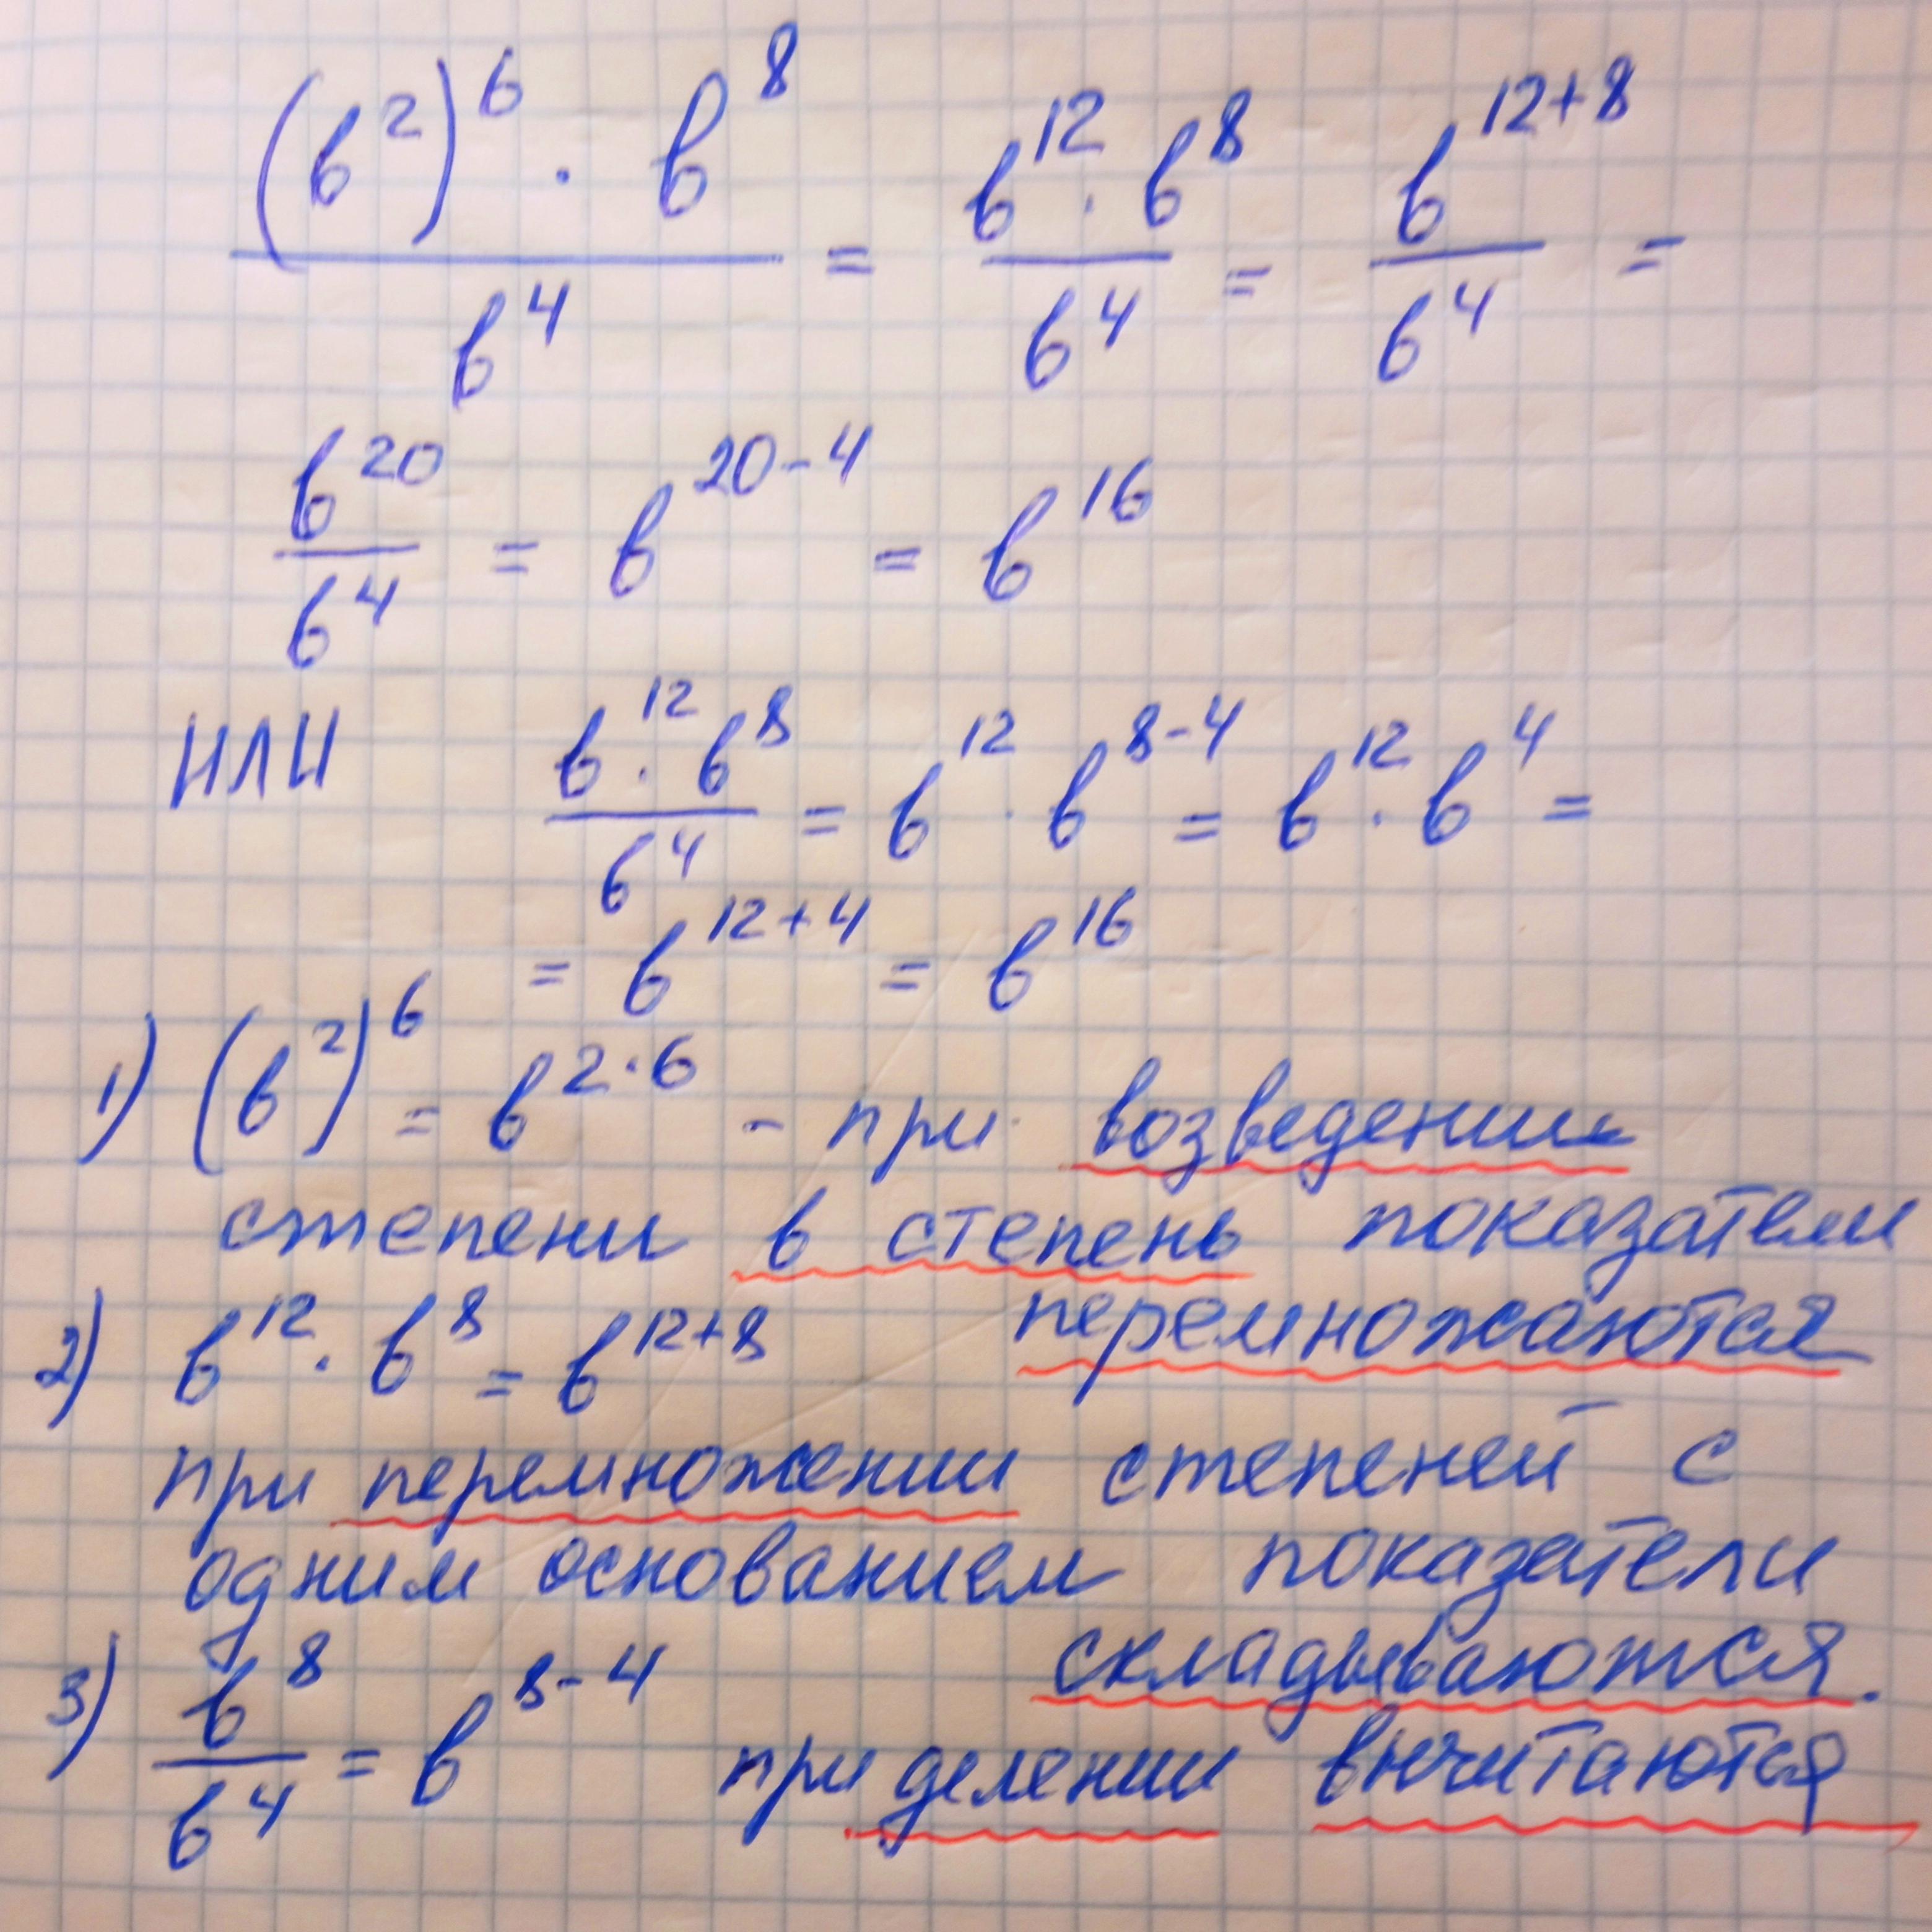 (b²)⁶ · b⁸ / b⁴ = b¹² · b⁸ / b⁴ = b¹²⁺⁸ / b⁴ =
b²⁰ / b⁴ = b²⁰⁻⁴ = b¹⁶
ИЛИ b¹² · b⁸ / b⁴ = b¹² · b⁸⁻⁴ = b¹² · b⁴ =
= b¹²⁺⁴ = b¹⁶
1) (b²)⁶ = b^(2·6) - при возведении
степени в степень показатели
перемножаются
2) b¹² · b⁸ = b¹²⁺⁸
при перемножении степеней с
одним основанием показатели
складываются.
3) b⁸ / b⁴ = b⁸⁻⁴ при делении вычитаются